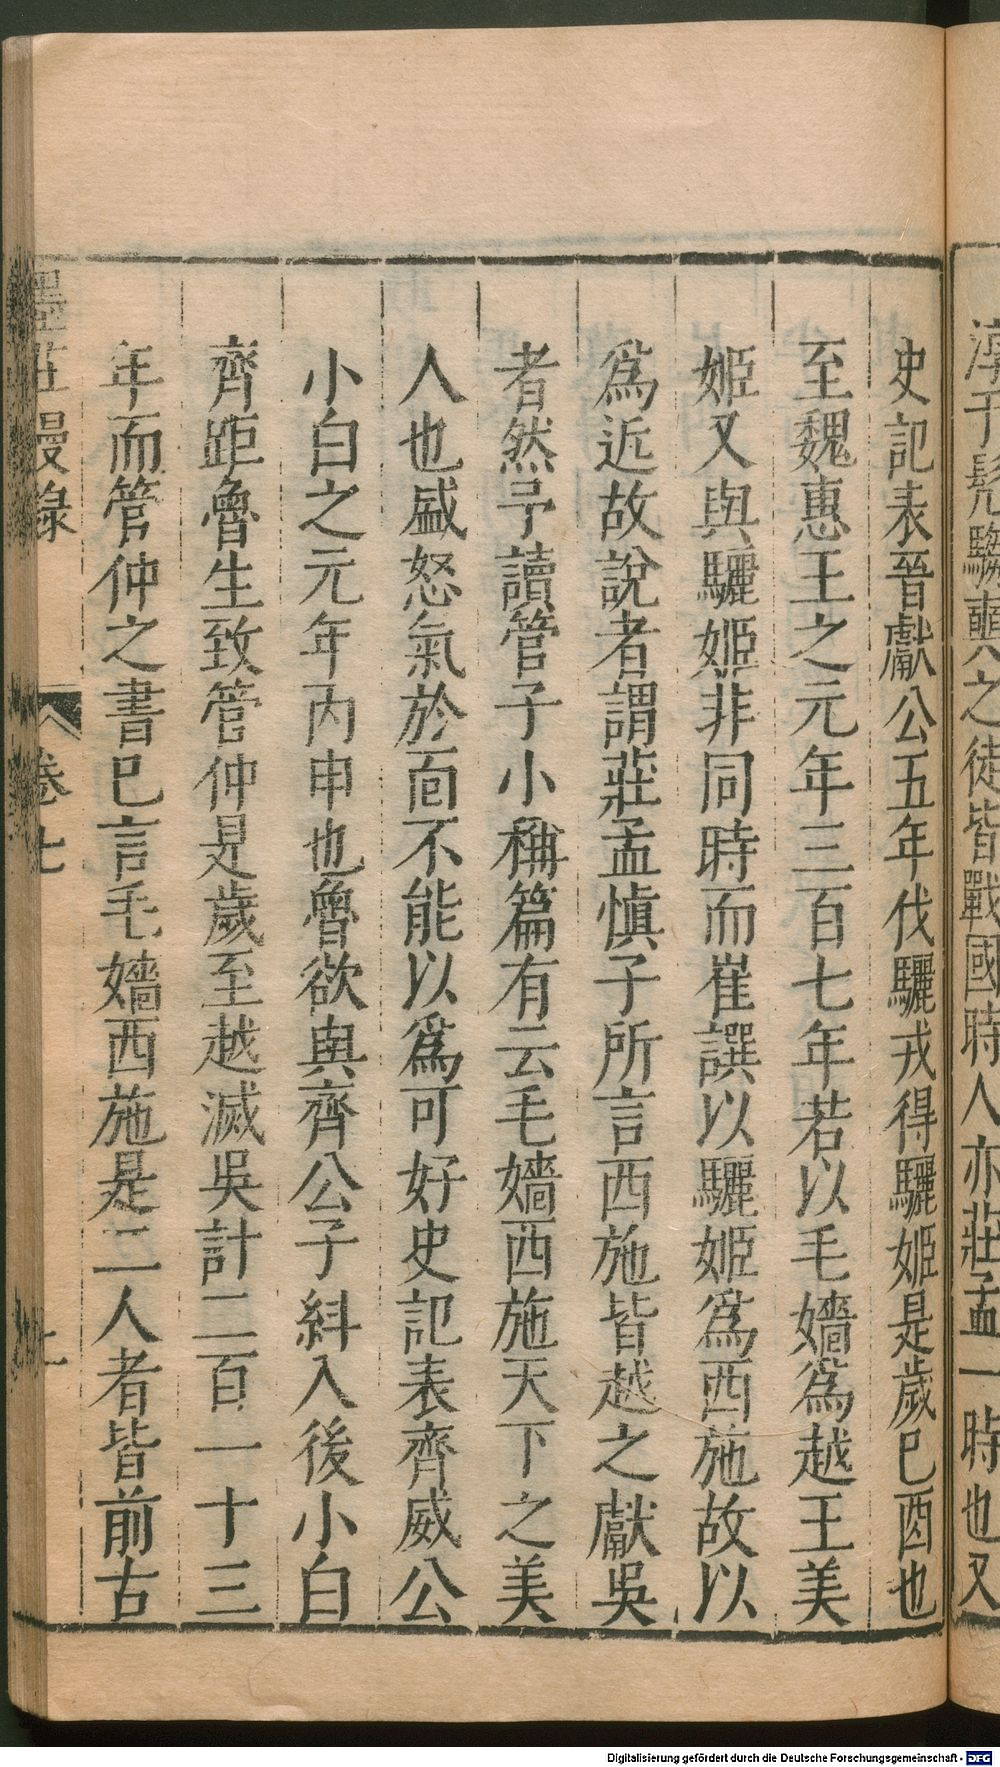 淳于髠騶奭之徒皆戰國時人亦莊孟一時也又
史記表晉獻公五年伐驪戎得驪姬是歲已酉也
至魏惠王之元年三百七年若以毛嬙爲越王美
姬又與驪姬非同時而崔譔以驪姬爲西施故以
爲近故說者謂莊孟愼子所言西施皆越之獻吳
者然予讀管子小稱篇有云毛嬙西施天下之美
人也盛怒氣於面不能以爲可好史記表齊威公
小白之元年丙申也魯欲與齊公子糾入後小白
齊距魯生致管仲是歲至越滅吳計二百一十三
年而管仲之書已言毛嬙西施是二人者皆前古
墨莊漫錄 卷七
Digitalisierung gefördert durch die Deutsche Forschungsgemeinschaft - DFG